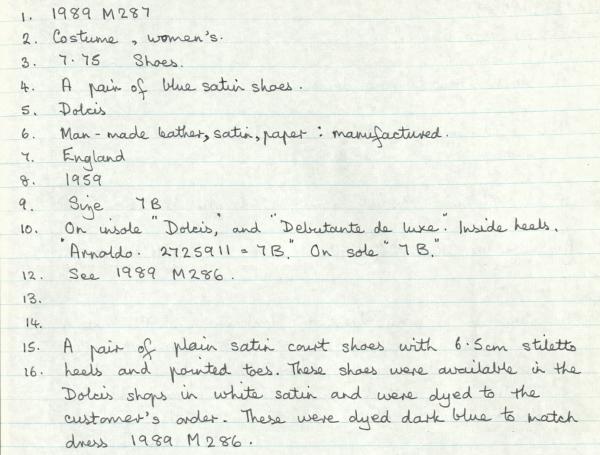 1. 1989 M287
2. Costume, women's.
3. 7.75 Shoes.
4. A pair of blue satin shoes.
5. Dolcis
6. Man-made leather, satin, paper : manufactured.
7. England
8. 1959
9. Size 7B
10. On insole "Dolcis," and "Debutante de luxe". Inside heels.
"Arnoldo. 2725911 = 7B." On sole "7B."
12. See 1989 M286.
13.
14.
15. A pair of plain satin court shoes with 6.5cm stiletto
16. heels and pointed toes. These shoes were available in the
Dolcis shops in white satin and were dyed to the
customer's order. These were dyed dark blue to match
dress 1989 M286.